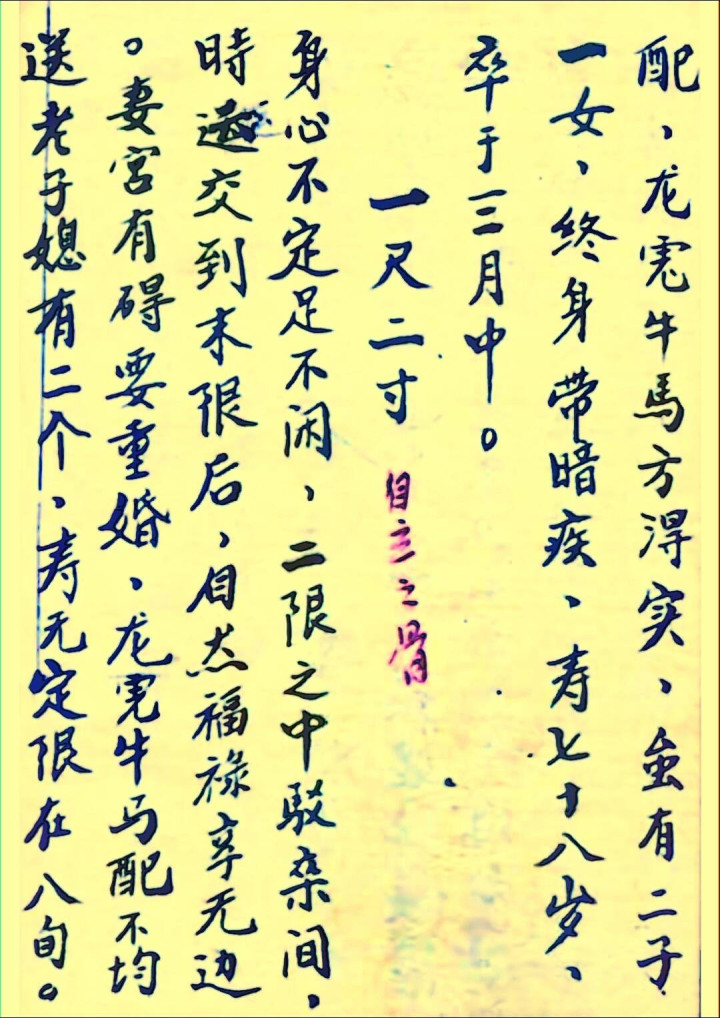 配、龙虎牛馬方得实、虽有二子
一女、终身带暗疾、寿七十八岁、
卒于三月中。
一尺二寸 自立之骨
身心不定足不闲、二限之中驳杂间，
時运交到末限后，自然福禄享无边
。妻宫有碍要重婚、龙虎牛马配不均
送老子媳有二个、寿元定限在八旬。